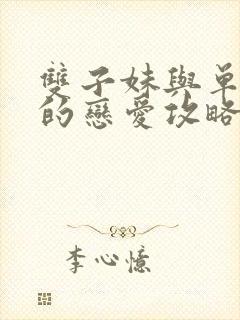 雙子妹與單
的戀愛攻略
李心憶